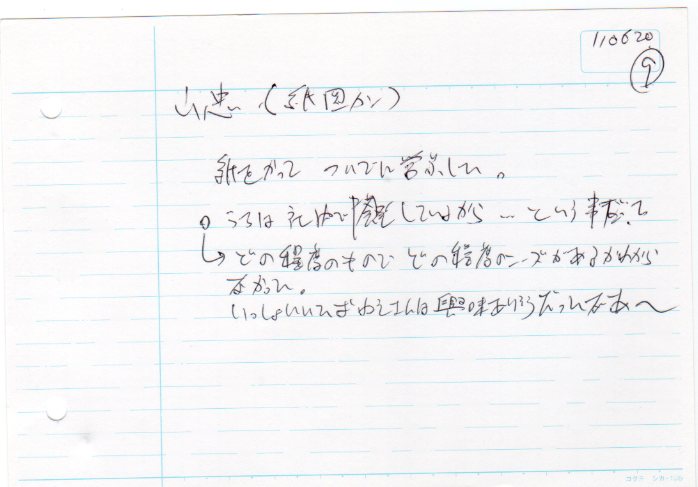 110620
⑨
山忠(紙図カン)
紙をかって ついでに営業した。
○ うちは 社内で しているから … という事だった
↳ どの程度のもので どの程度のニーズがあるかわから
なかった。
いっしょにいた は興味ありそうだったなあ〜
コクヨ シカ-